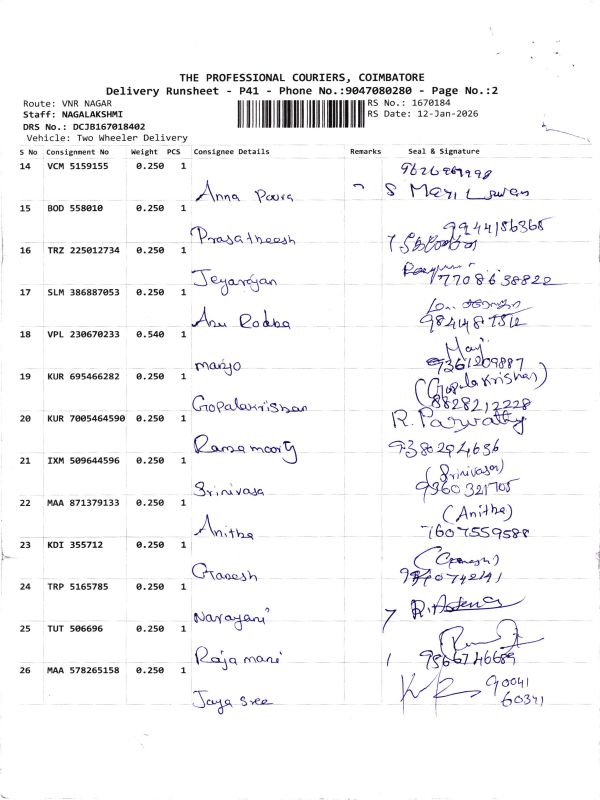 THE PROFESSIONAL COURIERS, COIMBATORE
Delivery Runsheet - P41 - Phone No.:9047080280 - Page No.:2
Route: VNR NAGAR
Staff: NAGALAKSHMI
DRS No.: DCJB167018402
Vehicle: Two Wheeler Delivery
RS No.: 1670184
RS Date: 12-Jan-2026
S No Consignment No Weight PCS Consignee Details Remarks Seal & Signature
14 VCM 5159155 0.250 1
Anna Poura
15 BOD 558010 0.250 1
9944186365
Prasatheesh
16 TRZ 225012734 0.250 1
7708638822
Jeyarajan
17 SLM 386887053 0.250 1
Abu
18 VPL 230670233 0.540 1
Mari
9361209887
mariyo
19 KUR 695466282 0.250 1
(Gopalakrishnan)
8828212228
Gopalakrishnan
20 KUR 7005464590 0.250 1
R. Parwathy
Ramamoorty
9380294636
21 IXM 509644596 0.250 1
(Srinivasan)
Srinivasa
9360321705
22 MAA 871379133 0.250 1
(Anitha)
Anitha
7607559588
23 KDI 355712 0.250 1
(Ganesh)
Ganesh
24 TRP 5165785 0.250 1
Narayani
25 TUT 506696 0.250 1
Raja mani
9566746689
26 MAA 578265158 0.250 1
90041
60341
Jaya sree